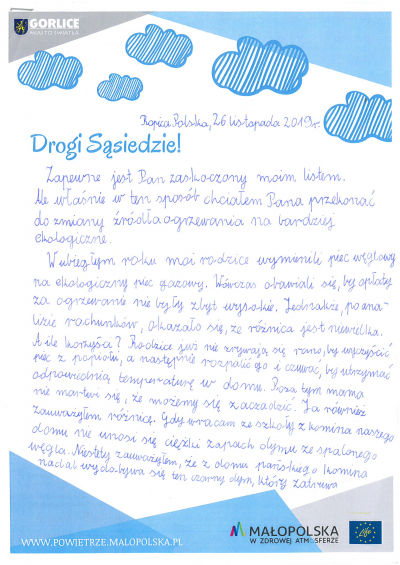 GORLICE
MIASTO ŚWIATŁA
Ropica Polska, 26 listopada 2019r.
Drogi Sąsiedzie!
Zapewne jest Pan zaskoczony moim listem.
Ale właśnie w ten sposób chciałem Pana przekonać
do zmiany źródła ogrzewania na bardziej
ekologiczne.
W ubiegłym roku moi rodzice wymienili piec węglowy
na ekologiczny piec gazowy. Wówczas obawiali się, by opłaty
za ogrzewanie nie były zbyt wysokie. Jednakże, po ana-
lizie rachunków, okazało się, że różnica jest niewielka.
A ile korzyści? Rodzice już nie zrywają się rano, by wyczyścić
piec z popiołu, a następnie rozpalić go i czuwać, by utrzymać
odpowiednią temperaturę w domu. Poza tym mama
nie martwi się, że możemy się zaczadzić. Ja również
zauważyłem różnicę. Gdy wracam ze szkoły z komina naszego
domu nie unosi się ciężki zapach dymu ze spalonego
węgla. Niestety zauważyłem, że z domu pańskiego komina
nadal wydobywa się ten czarny dym, który zatruwa
WWW.POWIETRZE.MALOPOLSKA.PL
MAŁOPOLSKA
W ZDROWEJ ATMOSFERZE
Life